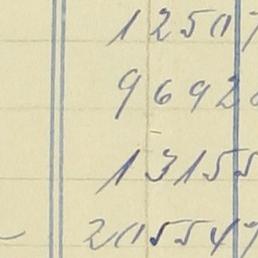 12507
9692
13155
205547